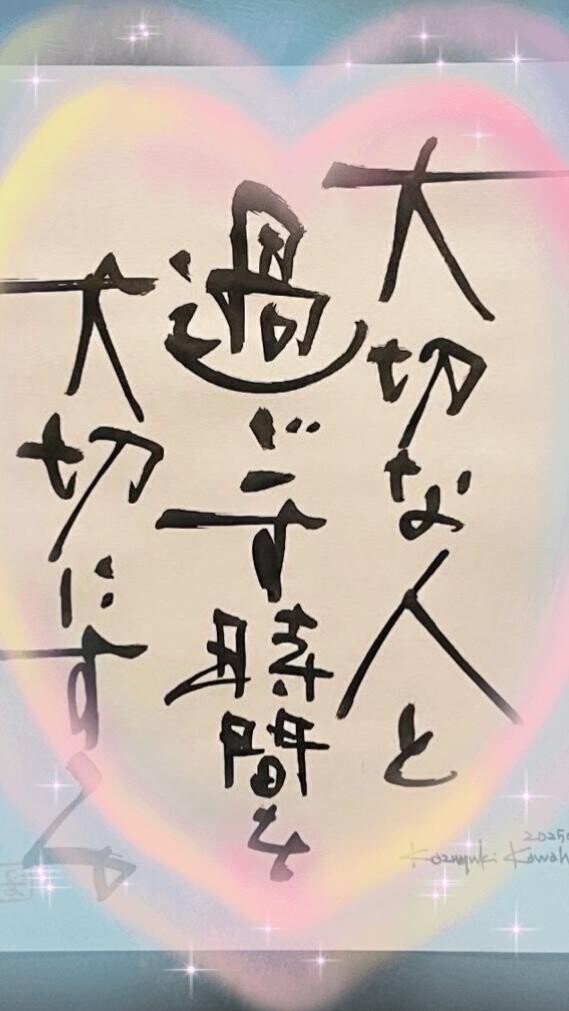 大切な人と
過ごす時間を
大切にする
2025
Kazuyuki Kawah